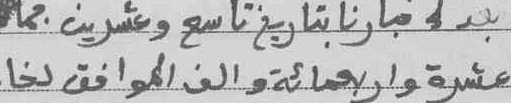 بعد له مبارنا بتاريخ تاسع وعشرين جما
عشرة واربعمائة والف الموافق لخا